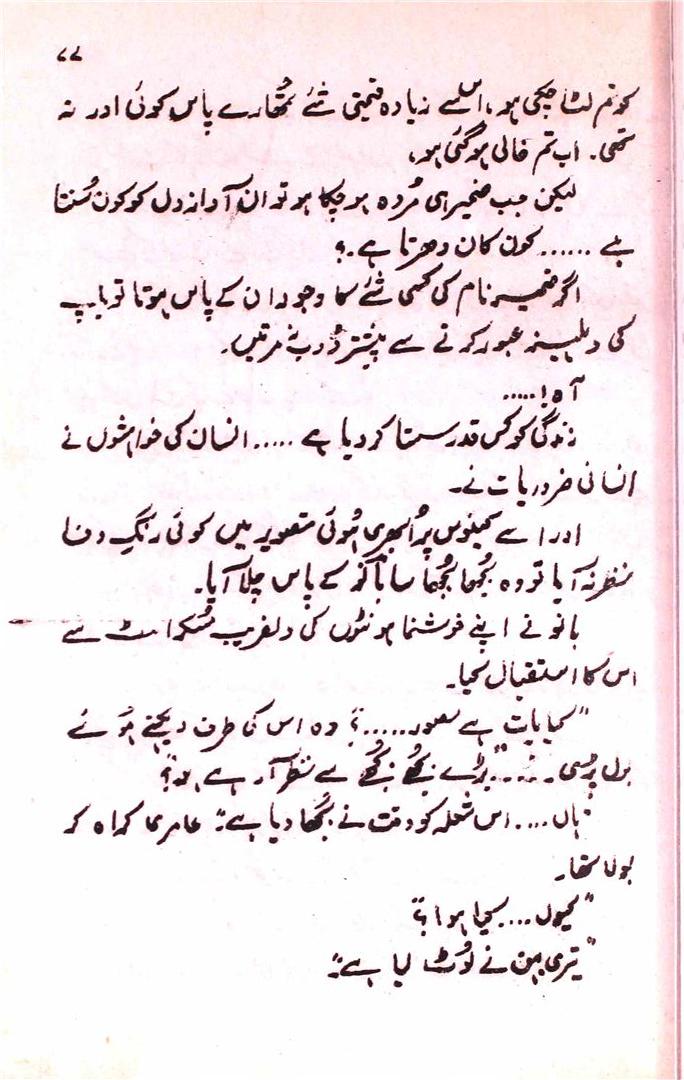 ۷۷
کو تم لٹا چکی ہو، اس سے زیادہ قیمتی شے تمُھارے پاس کوئی اور نہ
تھی۔ اب تم خالی ہو گئی ہو،
لیکن جب ضمیر ہی مُردہ ہو چکا ہو تو ان آوازِ دل کو کون سُنتا
ہے ...... کون کان دھرتا ہے۔؟
اگر ضمیر نام کی کسی شے کا وجود ان کے پاس ہوتا تو باپ
کی دہلیز عبور کرنے سے پیشتر ڈوب نہ مرتیں۔
آہ! .....
زندگی کو کس قدر سستا کر دیا ہے ..... انسان کی خواہشوں نے
انسانی ضروریات نے۔
اور اسے کینوس پر اُبھری ہُوئی تصویر میں کوئی رنگِ وفا
نظر نہ آیا تو وہ بُجھا بُجھا سا بانو کے پاس چلا آیا۔
بانو نے اپنے خوشنما ہونٹوں کی دلفریب مُسکراہٹ سے
اس کا استقبال کیا۔
"کیا بات ہے مصور.....؟ وہ اس کی طرف دیکھتے ہُوئے
بول پڑی ..... "بڑے بُجھے بُجھے سے نظر آ رہے ہو؟"
"ہاں .... اس شعلہ کو وقت نے بُجھا دیا ہے" عامر کراہ کر
بولا تھا۔
"کیوں .... کیا ہوا؟"
"تیری بہن نے لُوٹ لیا ہے"